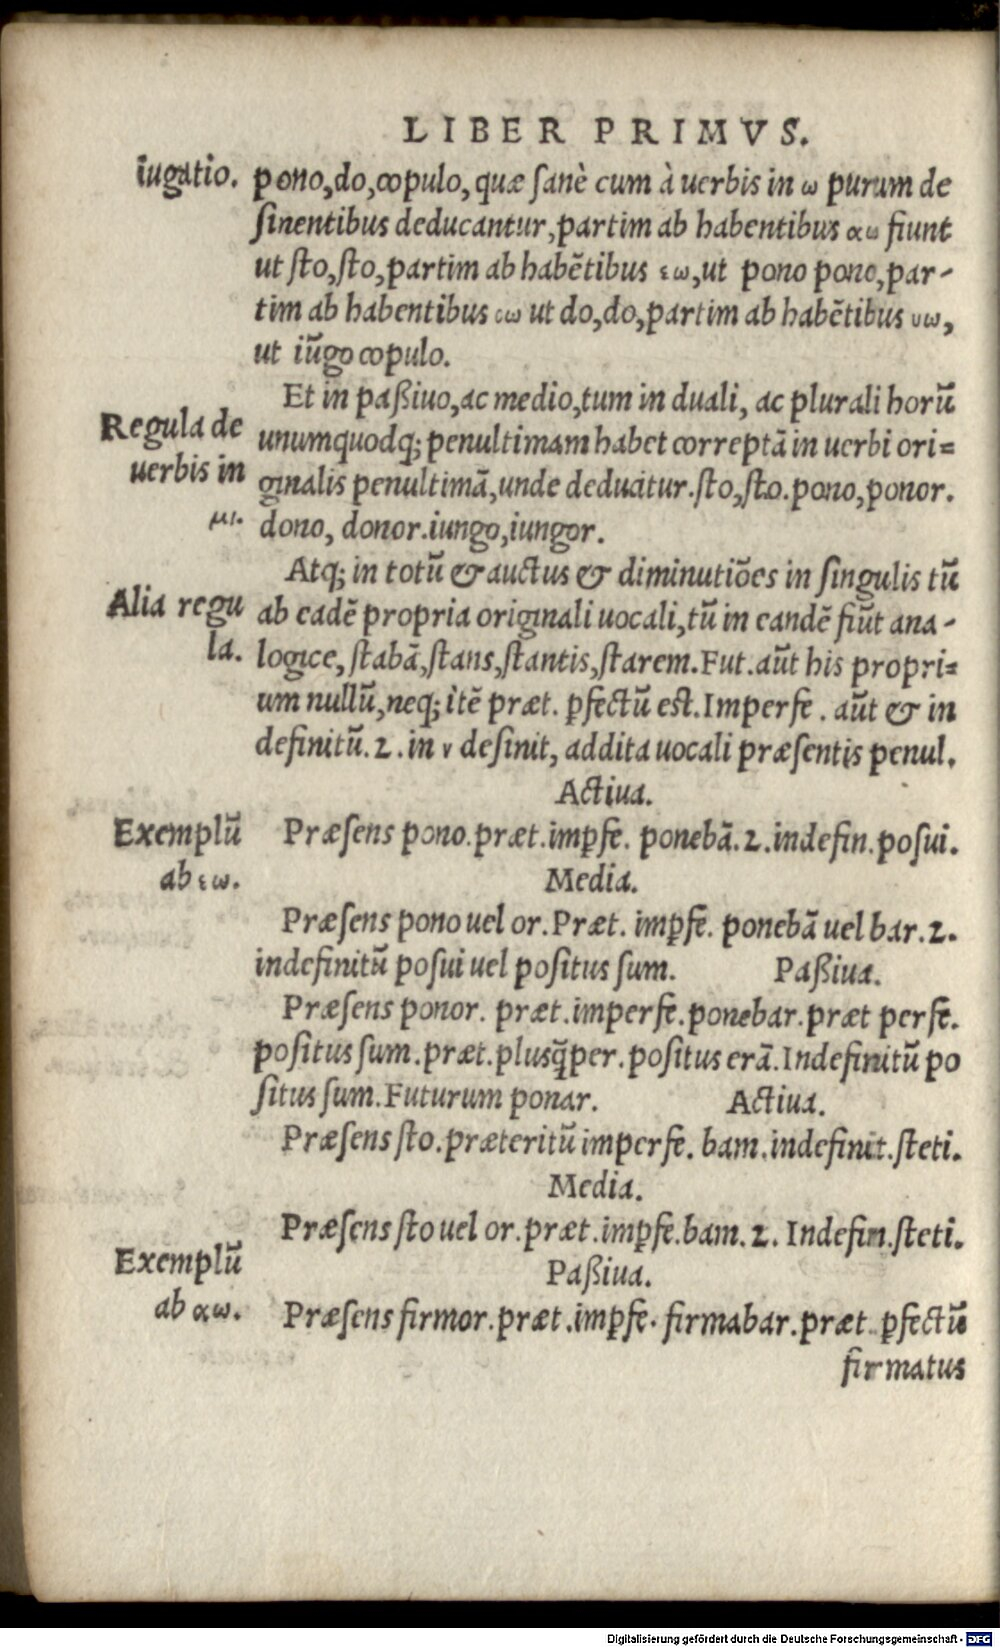 LIBER PRIMVS.
iugatio.
pono,do,copulo, quæ ſanè cum à uerbis in ω purum de
ſinentibus deducantur,partim ab habentibus αω fiunt
ut ſto,ſto,partim ab habētibus εω,ut pono pono,par-
tim ab habentibus οω ut do,do,partim ab habētibus υω,
ut iūgo copulo.
Et in paßiuo,ac medio,tum in duali, ac plurali horū
Regula de
uerbis in
μι.
unumquodq; penultimam habet correptā in uerbi ori=
ginalis penultimā,unde deducitur.ſto,ſto.pono,ponor.
dono, donor.iungo,iungor.
Atq; in totū & auctus & diminutiōes in ſingulis tū
Alia regu
la.
ab eadē propria originali uocali,tū in eandē fiūt ana-
logice, ſtabā,ſtans,ſtantis,ſtarem.Fut.aūt his propri=
um nullū,neq; itē præt. p̱fectū est.Imperfe. aūt & in
definitū.2. in ν deſinit, addita uocali præſentis penul.
Actiua.
Exemplū
ab εω.
Præſens pono.præt.imp̱fe. ponebā.2.indefin.poſui.
Media.
Præſens pono uel or.Præt. imp̱fe. ponebā uel bar.2.
indefinitū poſui uel poſitus ſum. Paßiua.
Præſens ponor. præt.imperfe.ponebar.præt perfe.
poſitus ſum.præt.plusq̄per.poſitus erā.Indefinitū po
ſitus ſum.Futurum ponar. Actiua.
Præſens ſto.præteritū imperfe. bam.indefinit.ſteti.
Media.
Præſens ſto uel or.præt.imp̱fe.bam.2. Indefin.ſteti.
Paßiua.
Exemplū
ab αω.
Præſens firmor.præt.imp̱fe. firmabar.præt. p̱fectū
firmatus
Digitalisierung gefördert durch die Deutsche Forschungsgemeinschaft - DFG